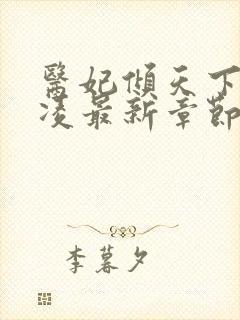 醫妃傾天下
凌最新章節
李暮夕